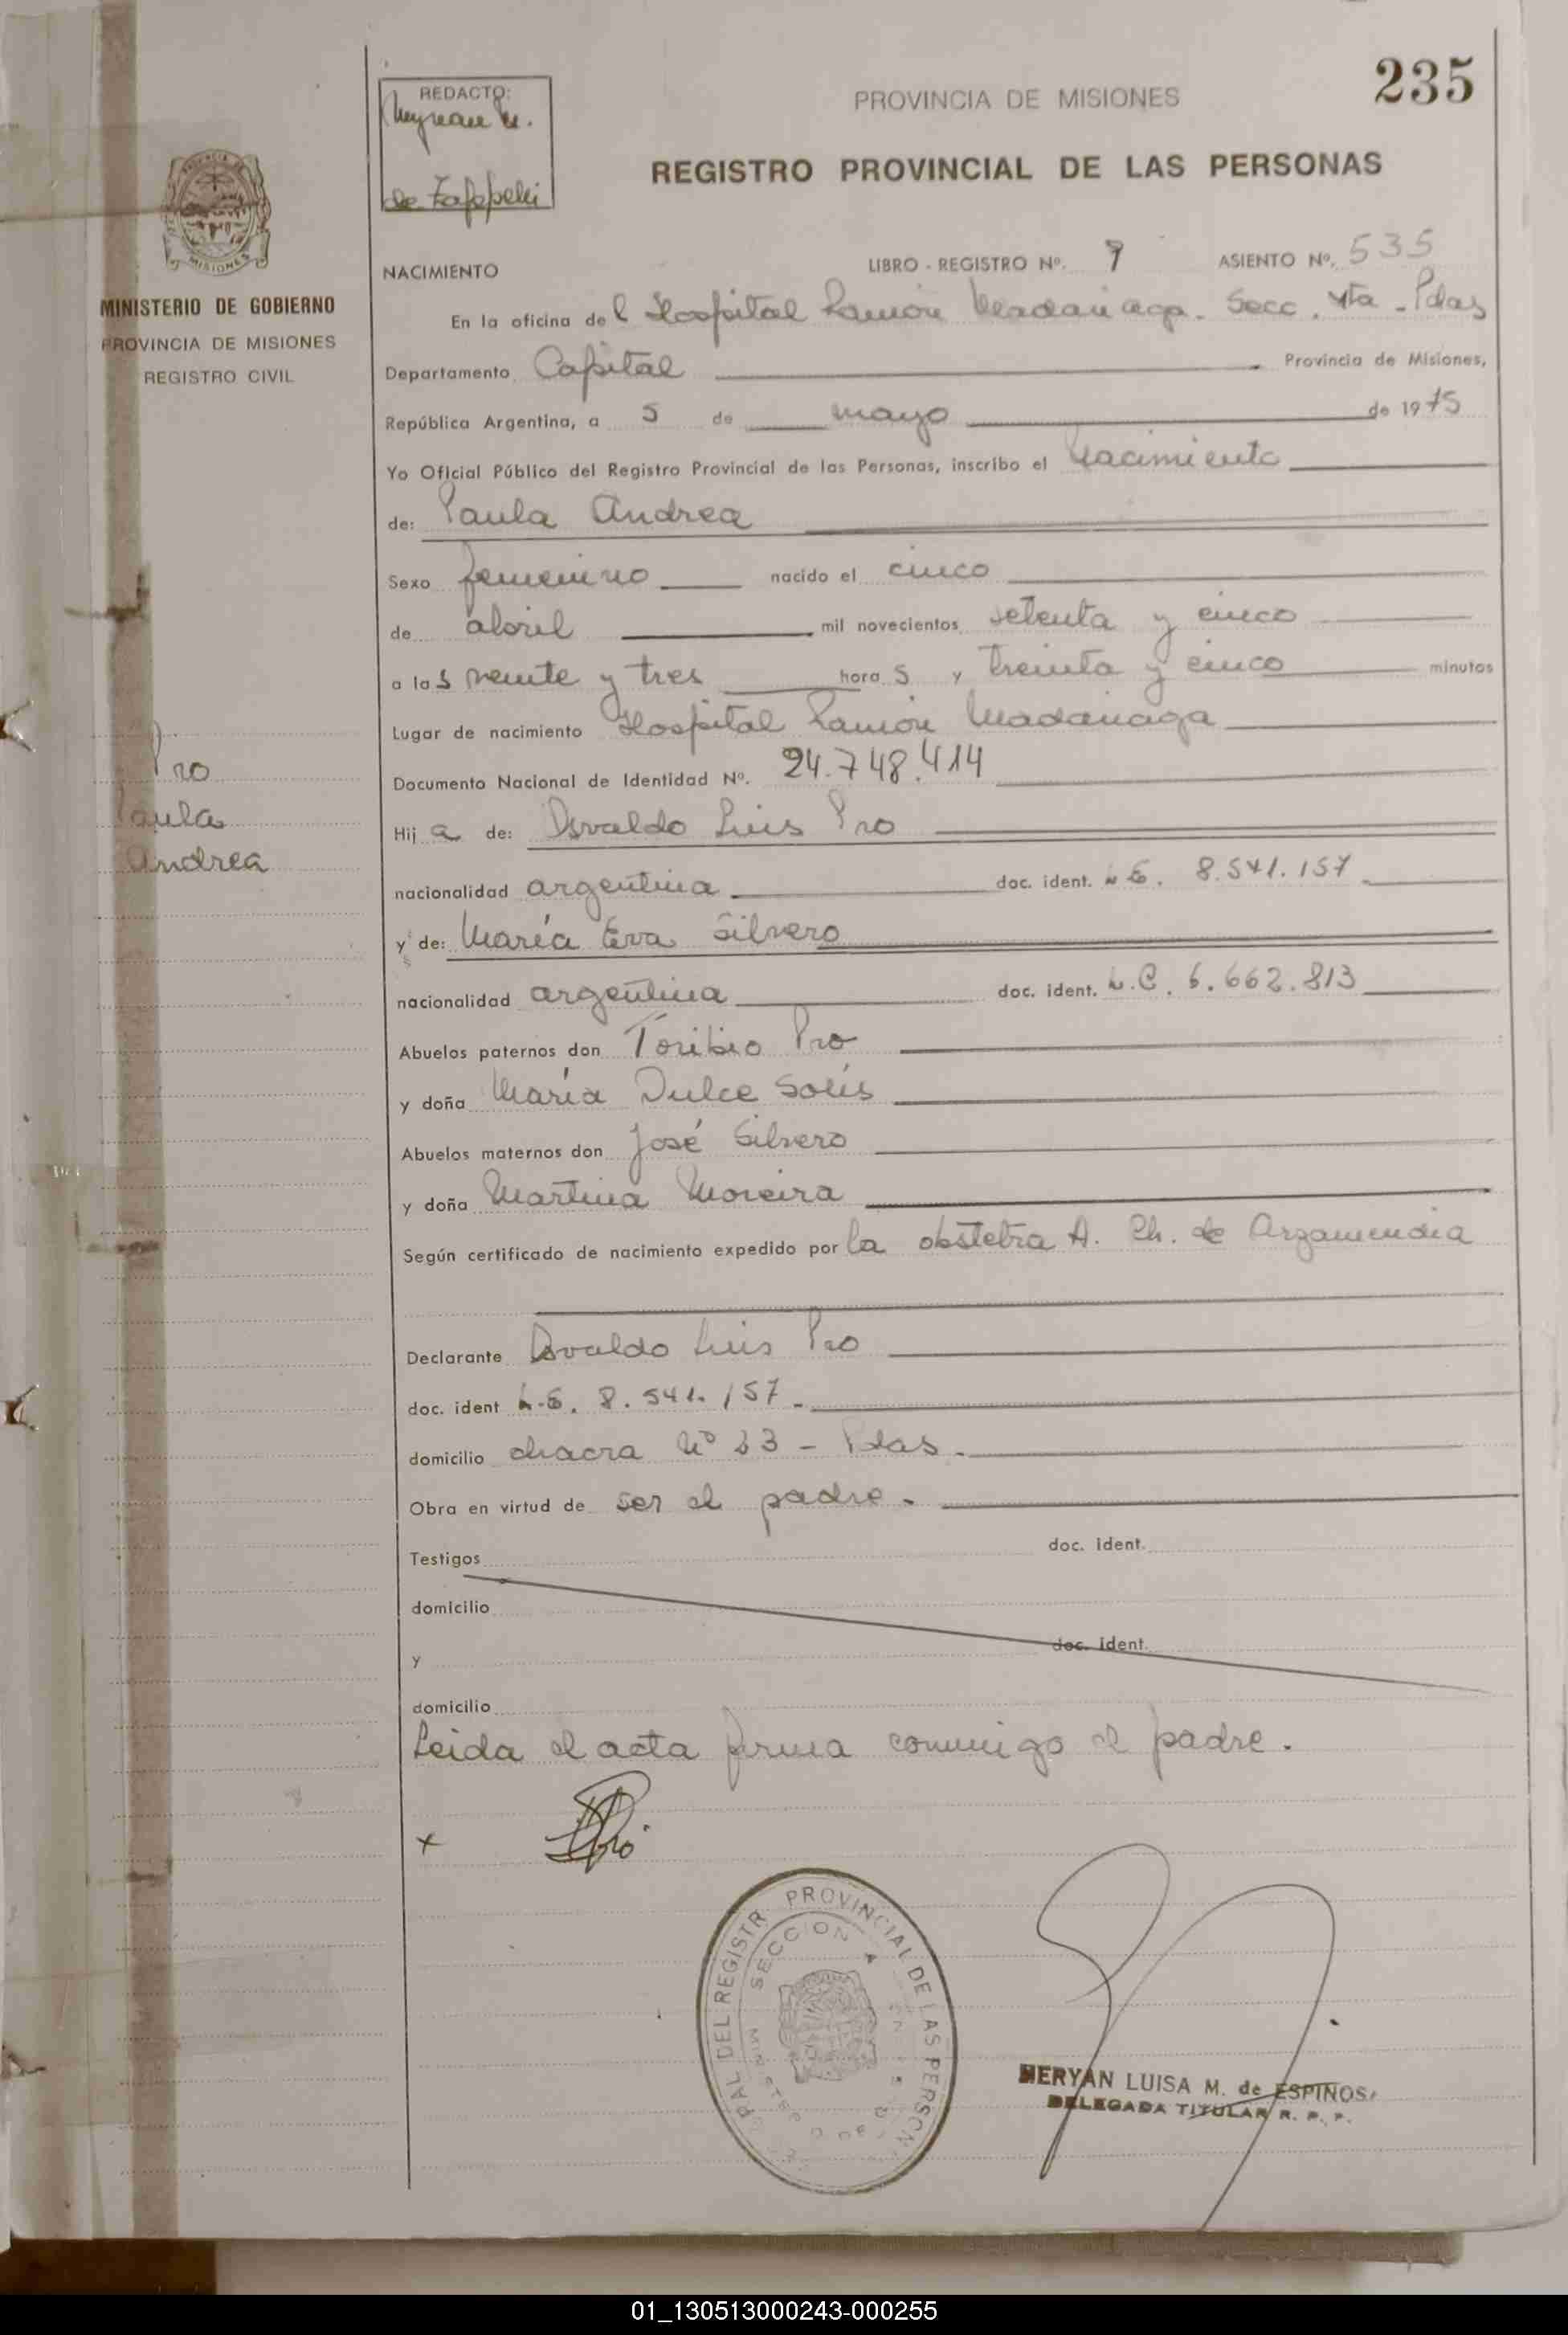 235
REDACTO:
PROVINCIA DE MISIONES
REGISTRO PROVINCIAL DE LAS PERSONAS
MISIONES
MINISTERIO DE GOBIERNO
PROVINCIA DE MISIONES
REGISTRO CIVIL
NACIMIENTO LIBRO - REGISTRO Nº. ASIENTO Nº. 535
En la oficina del Hospital Ramón Madariaga. Secc. 4ta - Pdas
Departamento Capital Provincia de Misiones,
República Argentina, a 5 de mayo de 1975
Yo Oficial Público del Registro Provincial de las Personas, inscribo el Nacimiento
de: Paula Andrea
Sexo femenino nacido el cinco
de abril mil novecientos setenta y cinco
a las veinte y tres horas y treinta y cinco minutos
Lugar de nacimiento Hospital Ramón Madariaga
Documento Nacional de Identidad Nº. 24.748.414
Pro
Paula
Andrea
Hija de: Osvaldo Luis Pro
nacionalidad argentina doc. ident. L.E. 8.541.157
y de: María Eva Silvero
nacionalidad argentina doc. ident. L.C. 6.662.813
Abuelos paternos don Toribio Pro
y doña María Dulce Solís
Abuelos maternos don José Silvero
y doña Martina Moreira
Según certificado de nacimiento expedido por la obstetra A. Ch. de Arzamendia
Declarante Osvaldo Luis Pro
doc. ident L.E. 8.541.157
domicilio chacra Nº - Pdas.
Obra en virtud de ser el padre.
Testigos doc. ident.
domicilio
y doc. ident.
domicilio
Leida el acta firma conmigo el padre.
PROVINCIAL DE LAS PERSON
PAL DEL REGISTR
SECCION
MERYAN LUISA M. de ESPINOS
DELEGADA TITULAR R. P. P.
01_130513000243-000255